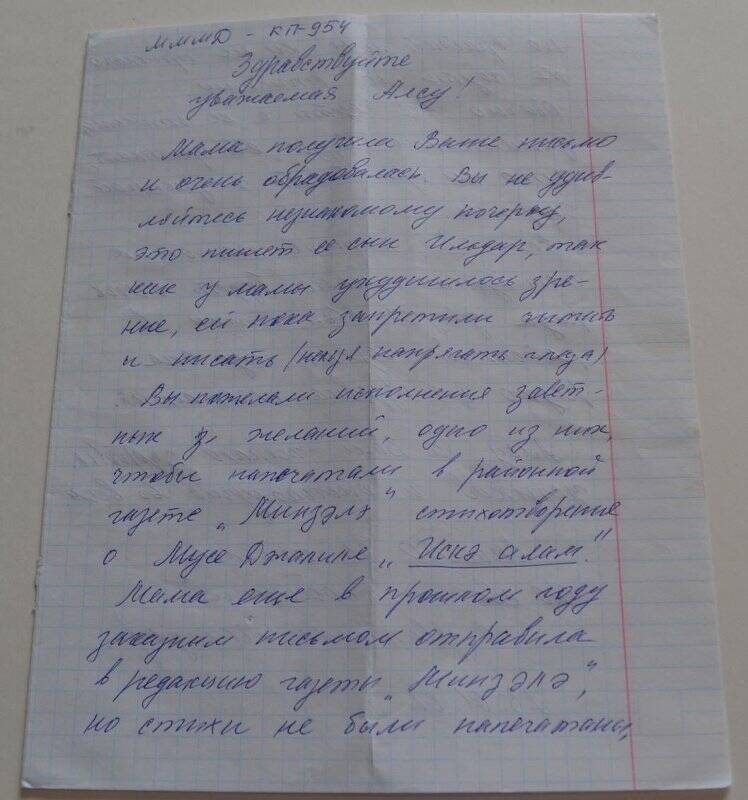 МММД - КП-954
Здравствуйте
уважаемая Алсу!
Мама получила Ваше письмо
и очень обрадовалась. Вы не удив-
ляйтесь незнакомому почерку,
это пишет ее сын Ильдар, так
как у мамы ухудшилось зре-
ние, ей пока запретили читать
и писать (нельзя напрягать глаза)
Вы пожелали исполнения завет-
ных 3х желаний, одно из них,
чтобы напечатали в районной
газете „Минзэлэ" стихотворение
о Мусе Джалиле „Искэ алам."
Мама еще в прошлом году
заказным письмом отправила
в редакцию газеты „Минзэлэ",
но стихи не были напечатаны,